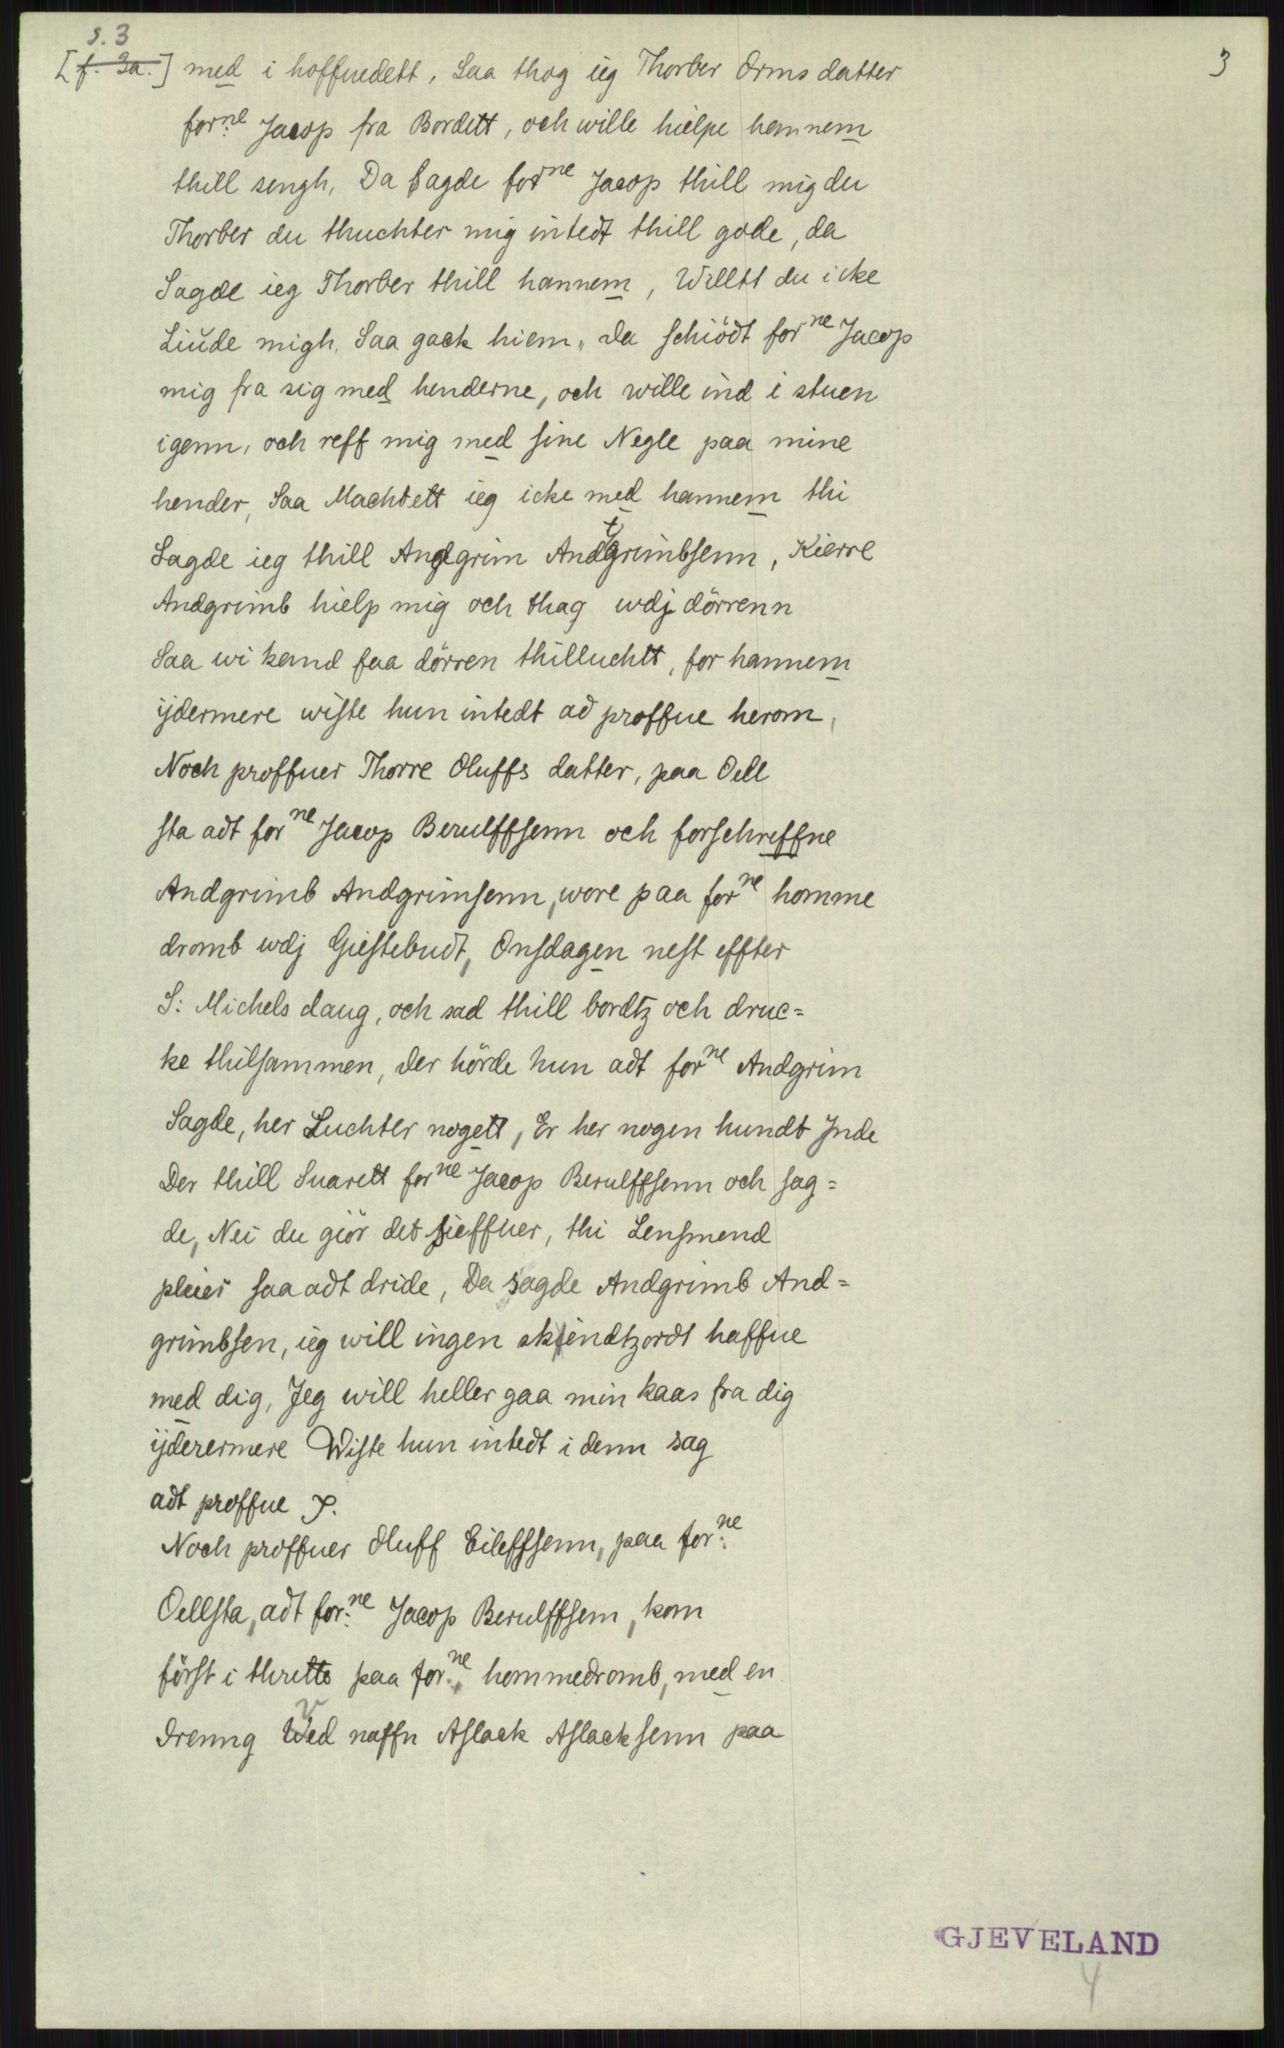 s. 3
[f. 3a.] med i hoffuedett, Saa thog ieg Thorber Orms datter
3
forne Jacop fra Bordett, och wille hielpe hannem
thill sengh, Da Sagde forne Jacop thill mig du
Thorber du thuchter mig intedt thill gode, da
Sagde ieg Thorber thill hannem, Willtt du icke
Liude migh. Saa gack hiem, da schiödt forne Jacop
mig fra sig med henderne, och wille ind i stuen
igenn, och reff mig med sine Negle paa mine
hender, Saa Machtett ieg icke med hannem thi
Sagde ieg thill Andgrim Andtgrimbsenn, Kierre
Andgrimb hielp mig och thag wdj dörrenn
Saa wi kand faa dörren thilluchtt, for hannem
ijdermere wiste hun intedt ad proffue herom,
Noch proffuer Thorre Oluffs datter, paa Oell
sta adt forne Jacop Berulffsenn och forschreffne
Andgrimb Andgrimsenn, wore paa forne homme
dromb wdj Giestebudt, Onsdagen nest effter
S: Michels daug, och sad thill bordtz och druc=
ke thilsammen, der hörde hun adt forne Andgrim
Sagde, her Luchter nogett, Er her nogen hundt Jnde
Der thill Suarett forne Jacop Berulffsenn och sag=
de, Nei du giör det sieffuer, thi Lensmend
pleier saa adt dride, Da sagde Andgrimb And=
grimbsen, ieg will ingen skiendtzordt haffue
med dig, Jeg will heller gaa min kaas fra dig
ijderermere Wiste hun intedt i denn sag
adt proffue
Noch proffuer Oluff Eileffsenn, paa forne
Oellsta, adt forne Jacop Berulffsenn, kom
först i thrette paa forne hommedromb, med en
drenng Wed naffn Aslack Aslacksenn paa
GJEVELAND
4